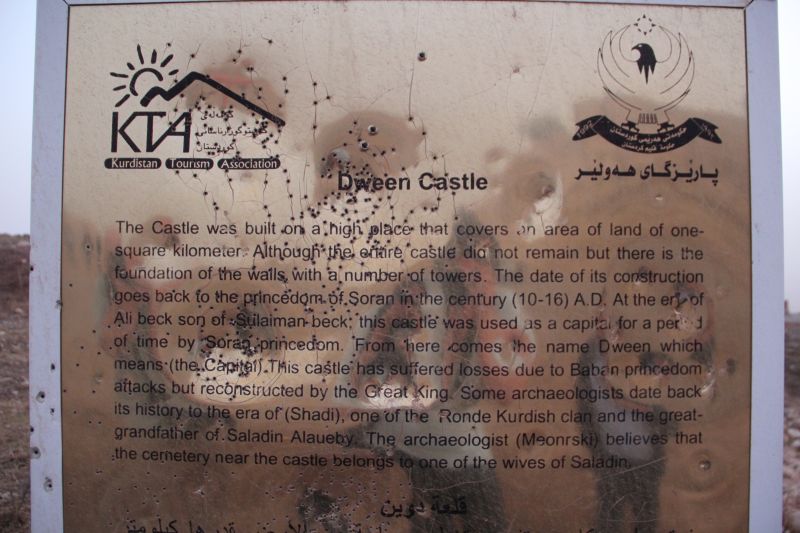 KTA
کوردستان
Kurdistan Tourism Association
1992
حکومەتی هەرێمی کوردستان
پارێزگای هەولێر
Dween Castle
The Castle was built on a high place that covers an area of land of one-
square kilometer. Although the entire castle did not remain but there is the
foundation of the walls with a number of towers. The date of its construction
goes back to the princedom of Soran in the century (10-16) A.D. At the era of
Ali beck son of Sulaiman beck, this castle was used as a capital for a period
of time by Soran princedom. From here comes the name Dween which
means (the Capital) This castle has suffered losses due to Baban princedom
attacks but reconstructed by the Great King. Some archaeologists date back
its history to the era of (Shadi), one of the Ronde Kurdish clan and the great-
grandfather of Saladin Alaueby. The archaeologist (Meonrski) believes that
the cemetery near the castle belongs to one of the wives of Saladin.
قلعة دوين